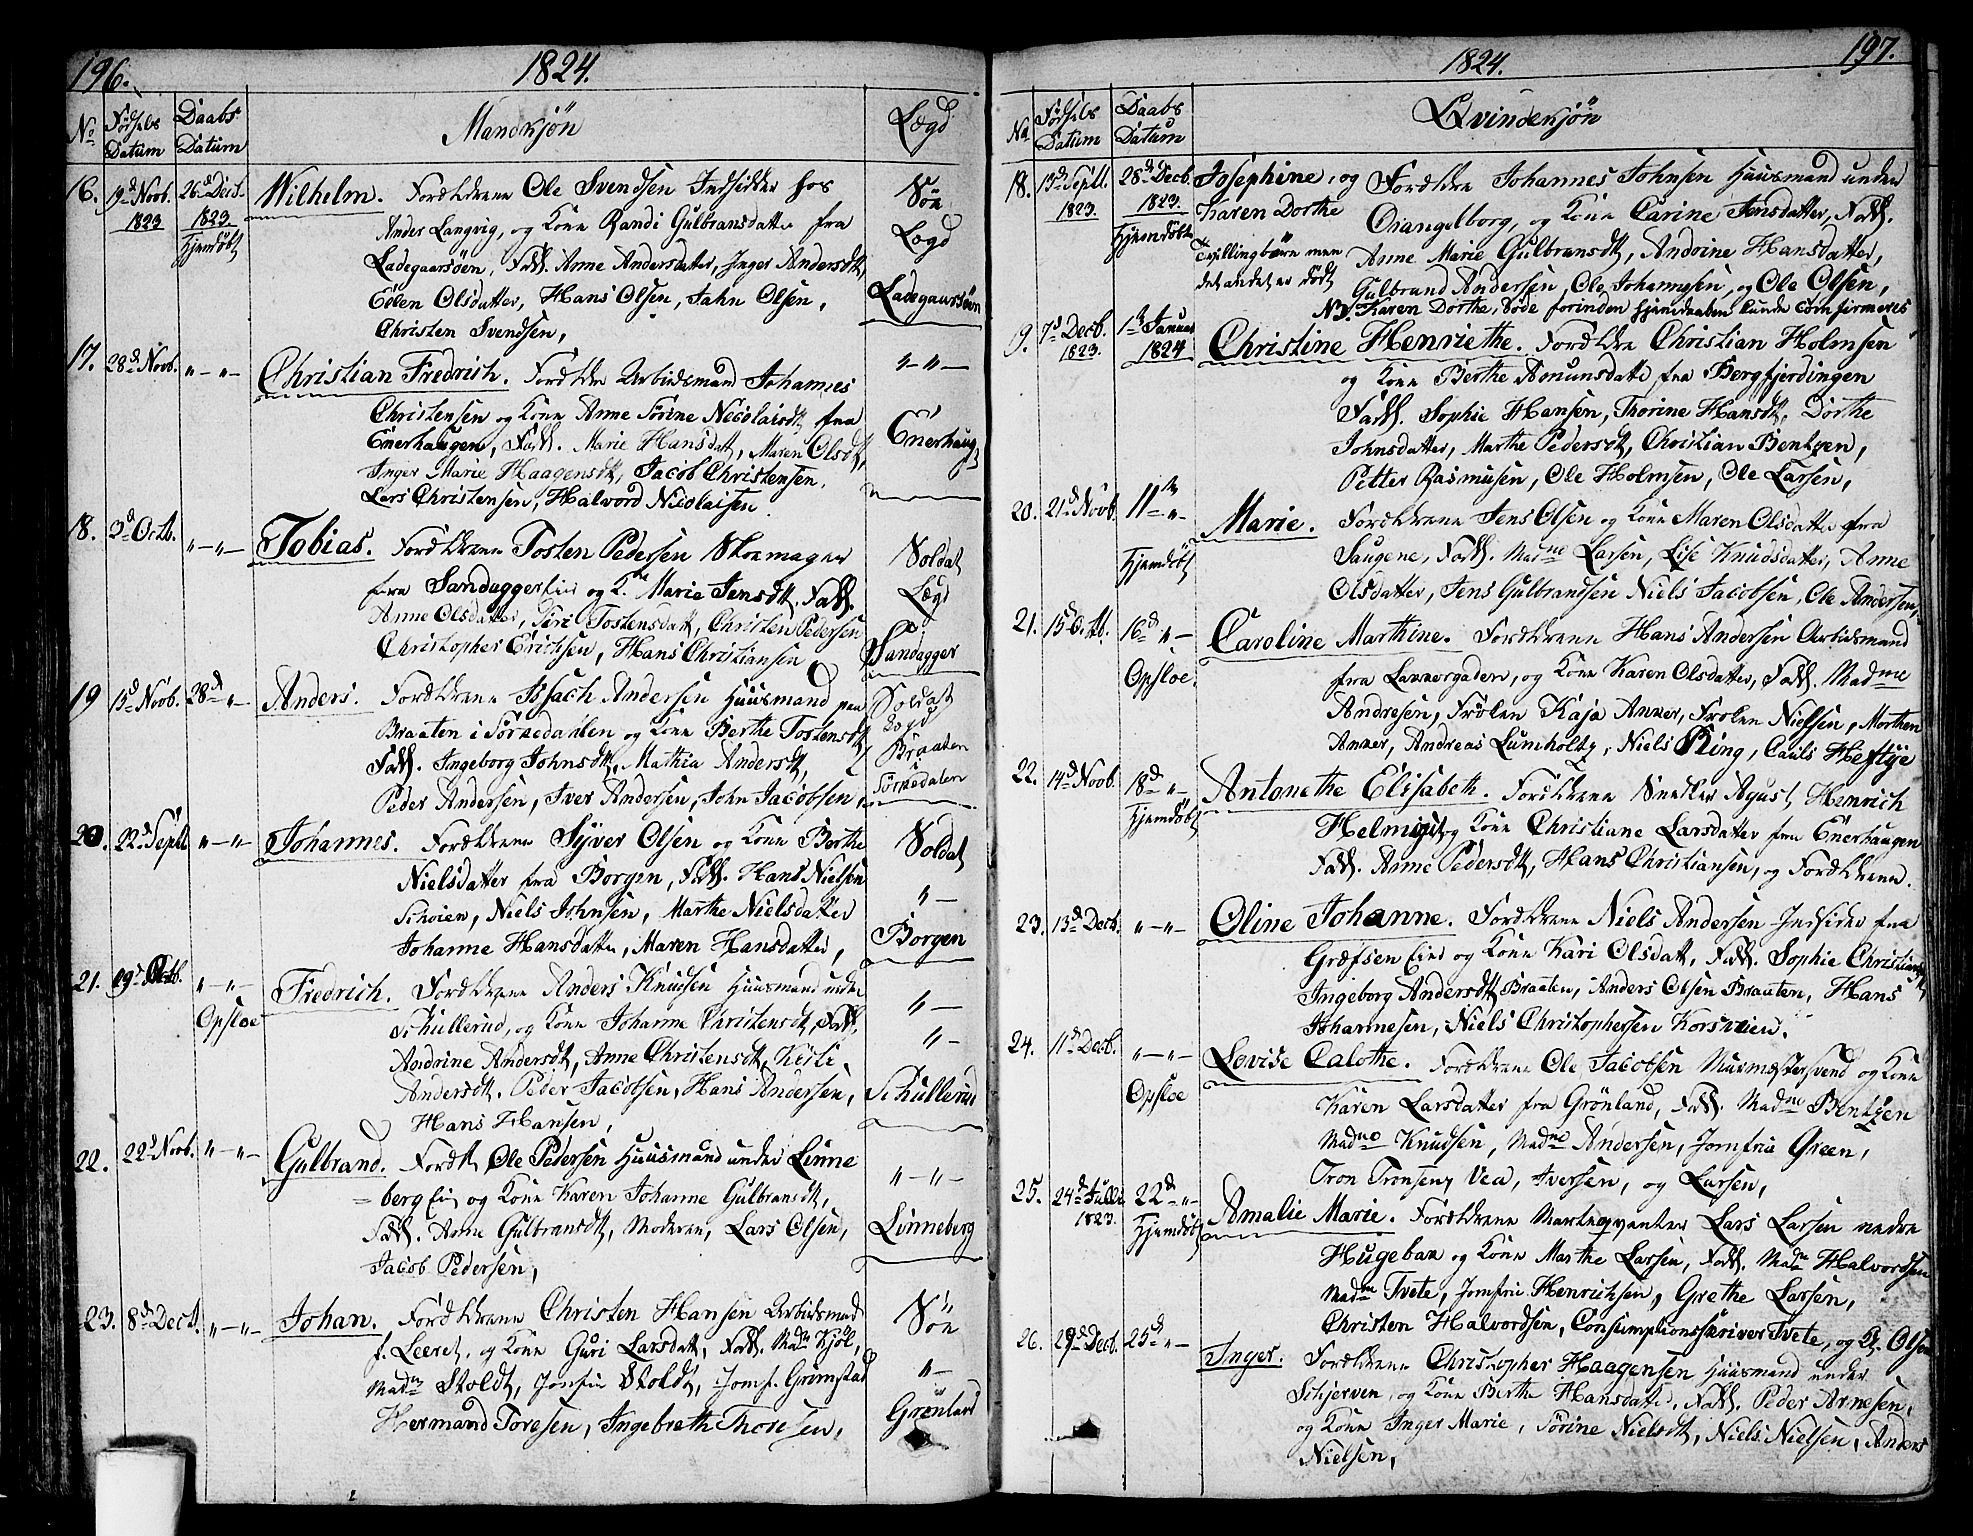 196.
1824.
No
Födsels Datum
Daabs Datum
Mandkjön
Lægd
16.
19d Novb. 1823
26d Decb. 1823 Hjemdöbt
Wilhelm. Forældrene Ole Svendsen Indsidder hos
Ander Langvig, og Kone Randi Gulbransdatter fra
Ladegaarsöen, Fadd. Anne Andersdatter, Inger Andersdt,
Eelen Olsdatter, Hans Olsen, Jahn Olsen,
Christen Svendsen,
Söe
Lægd
Ladegaarsöen
17.
28d Novb.
" — " —
Christian Fredrich. Forældre Arbidsmand Johannes
Christensen og Kone Anne Sörine Nicolaisdt fra
Enerhaugen, Fadd. Marie Hansdatt, Maren Olsdt,
Inger Marie Haagensdt, Jacob Christensen,
Lars Christensen, Halvord Nicolaisen
" — " —
Enerhaug
18.
2d Octb.
" — " —
Tobias. Forældrene Tosten Pedersen Skoemager
fra Sandagger og K. Marie Jensdt, Fadd.
Anne Olsdatter, Siri Tostensdatt, Christen Pedersen
Christopher Erichsen, Hans Christiansen
Soldat
Lægd
Sandagger
19
15d Novb.
28d " —
Anders. Forældrene Issach Andersen Huusmand paa
Braaten i Sörkedahlen og Kone Berthe Tostensdt
Fadd. Ingeborg Johnsdt, Mathia Andersdt,
Peder Andersen, Iver Andersen, John Jacobsen,
Soldat
Lægd
Braaten
Sörkedalen
20.
22d Septb
" — " —
Johannes. Forældrene Syver Olsen og Kone Berthe
Nielsdatter fra Borgen, Fadd. Hans Nielsen
Schöien, Niels Johnsen, Marthe Nielsdatter
Johanne Hansdatter, Maren Hansdatter,
Soldat
" —
Borgen
21.
19d Octb.
" — " —
Opsloe
Fredrich. Forældrene Anders Knudsen Huusmand under
Schullerud, og Kone Johanne Christensdt, Fadd.
Andrine Andersdt, Anne Christensdt, Kisti
Andersdt. Peder Jacobsen, Hans Andersen,
Hans Hansen,
" —
" —
Schullerud
22.
22d Novb.
" — " —
Gulbrand. Foreldr Ole Pedersen Huusmand under Linne
berg Eie og Kone Karen Johanne Gulbransdt,
Fadd. Anne Gulbransdt, Moderen, Lars Olsen,
Jacob Pedersen,
" — " —
Linneberg
23.
8d Decb.
" — " —
Johan. Forældrene Christen Hansen Arbidsmad
f. Leeret, og Kone Guri Larsdatt, Fadd. Madm Kjöl,
Madm Stoldt, Jomfru Stoldt, Jomf. Grimstad
Hermand Toresen, Ingebreth Thoresen,
Söe
" —
Grönland
1824.
197.
No
Födsels Datum
Daabs Datum
Qvindekjön
18.
13d Septb. 1823.
28d Decb. 1823. Hjemdöbt
Josephine, og Karen Dorthe
Tvillingbörn men det andet er dödt
Forældre Johannes Johnsen Huusmand under
Orangelborg, og Kone Carine Jensdatter, Fadd.
Anne Marie Gulbransdt, Andrine Hansdatter,
Gulbrand Andersen, Ole Johannesen, og Ole Olsen,
NB. Karen Dorthe, döde forinden Hjemdaaben kunde Confirmeres
9.
7d Decb. 1823.
1ste Januar 1824
Christine Henriethe. Forældre Christian Holmsen
og Kone Berthe Amunsdatr fra Bergfjerdingen
Fadd. Sophie Hansen, Thorine Hansdt, Dorthe
Johnsdatter, Marthe Pedersdt, Christian Bentzen,
Petter Rasmusen, Ole Holmsen, Ole Larsen,
20.
21d Novb.
11te " —
Hjemdöbt
Marie. Forældrene Jens Olsen og Kone Maren Olsdatter fra
Saugene, Fadd. Madme Larsen, Lise Knudsdatter, Anne
Olsdatter, Jens Gulbrandsen Niels Jacobsen, Ole Andersen,
21.
15d Octb.
16d " —
Opsloe.
Caroline Marthine. Forældrene Hans Andersen Arbidsmand
fra Lakkergaden, og Kone Karen Olsdatter, Fadd. Madme
Andresen, Frölen Kaja Anker, Frölen Nielsen, Morthen
Anker, Andreas Lumholtz, Niels Ring, Carls Heftye
22.
14d Novb.
18d " —
Hjemdöbt
Antonethe Elisabeth. Forældrene Snedker Agust Henrich
Helmich og Kone Christiane Larsdatter fra Enerhaugen
Fadd. Anne Pedersdt, Hans Christiansen, og Forældrene.
23.
13d Decb.
" — " —
Oline Johanne. Forældrene Niels Andersen Indsider fra
Græfsen Eie og Kone Kari Olsdatt, Fadd. Sophie Christiansdt,
Ingeborg Andersdt Braaten, Anders Olsen Braaten, Hans
Johannesen, Niels Christophersen Korsveien.
24.
11d Decb.
" — " —
Opsloe
Lovise Calothe. Forældrene Ole Jacobsen Murmestersvend og Kone
Karen Larsdatter fra Grönland, Fadd. Madme Bentzen
Madme Knudsen, Madme Andersen, Jomfrue Green,
Tron Tronsen, Vea, Iversen, og Larsen,
25.
24d Julii 1823.
22d " —
Hjemdöbt
Amalie Marie. Forældrene Marteqvanter Lars Larsen nedre
Hugebak og Kone Marthe Larsen, Fadd. Madm Halvordsen
Madme Tvete, Jomfrue Henrichsen, Grethe Larsen,
Christen Halvordsen, Consumptionsskriver Tvete, og Kl. Olsen
26.
29d Decb.
25d " —
Inger. Forældrene Christopher Haagensen Huusmand under
Schjerven, og Kone Berthe Hansdatter, Fadd. Peder Arnesen,
og Kone Inger Marie, Sörine Nielsdt, Niels Nielsen, Anders
Nielsen,